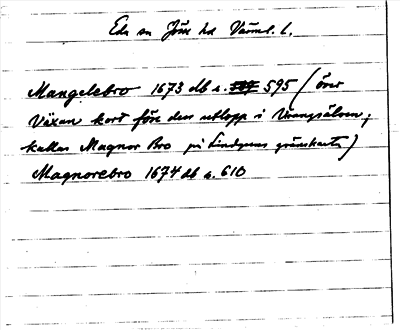 Eda sn Jösse hd Värml. l.
Mangelebro 1673 db s. 595 (över
Växan kort före dess utlopp i Vrangsälven;
kallas Magnor Bro på Lindgrens gränskarta)
Magnorebro 1674 db s. 610